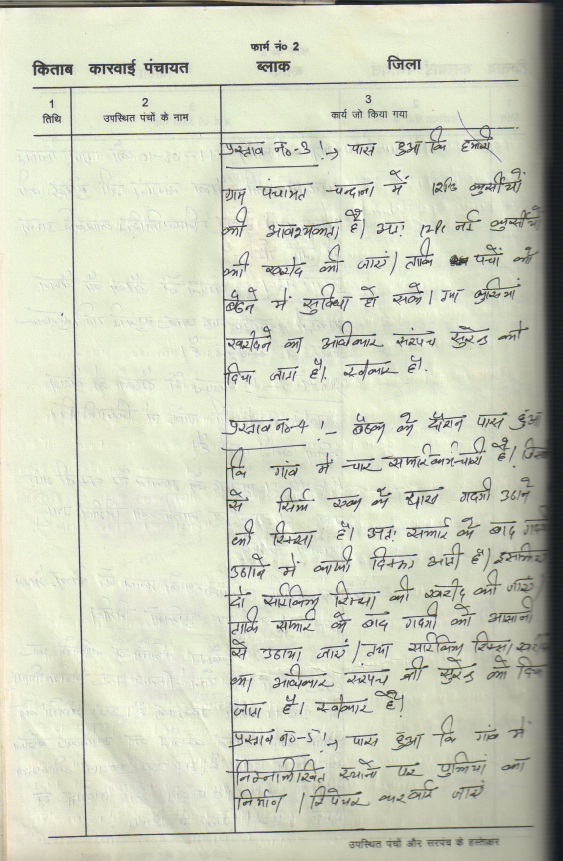 फार्म नं० 2
किताब कारवाई पंचायत ब्लाक जिला
1 2 3
तिथि उपस्थित पंचों के नाम कार्य जो किया गया
प्रस्ताव नं०-3 !→ पास हुआ कि हमारी
ग्राम पंचायत में कुर्सीयों
की आवश्यकता है। अतः नई कुर्सीयों
की खरीद की जाएं। ताकि पंचों को
बैठने में सुविधा हो सके। तथा कुर्सियां
खरीदने का अधिकार सरपंच सुरेन्द्र को
दिया जाता है। स्वीकार है।
प्रस्ताव नं०-4 !- बैठक के दौरान पास हुआ
कि गांव में चार सफाई कर्मचारी है।
से सिर्फ एक के पास गंदगी उठाने
की रिक्सा है। अतः सफाई के बाद
उठाने में काफी दिक्कत आती है। इसलिए
दो साईकिल रिक्सा की खरीद की जाएं
ताकि सफाई के बाद गंदगी को आसानी
से उठाया जाएं। तथा साईकिल रिक्सा
का अधिकार सरपंच श्री सुरेन्द्र को दिया
जाता है। स्वीकार है।
प्रस्ताव नं०-5 !→ पास हुआ कि गांव में
निम्नलिखित स्थानों पर पुलियां का
निर्माण / रिपेयर करवाई जाएं
उपस्थित पंचों और सरपंच के हस्ताक्षर